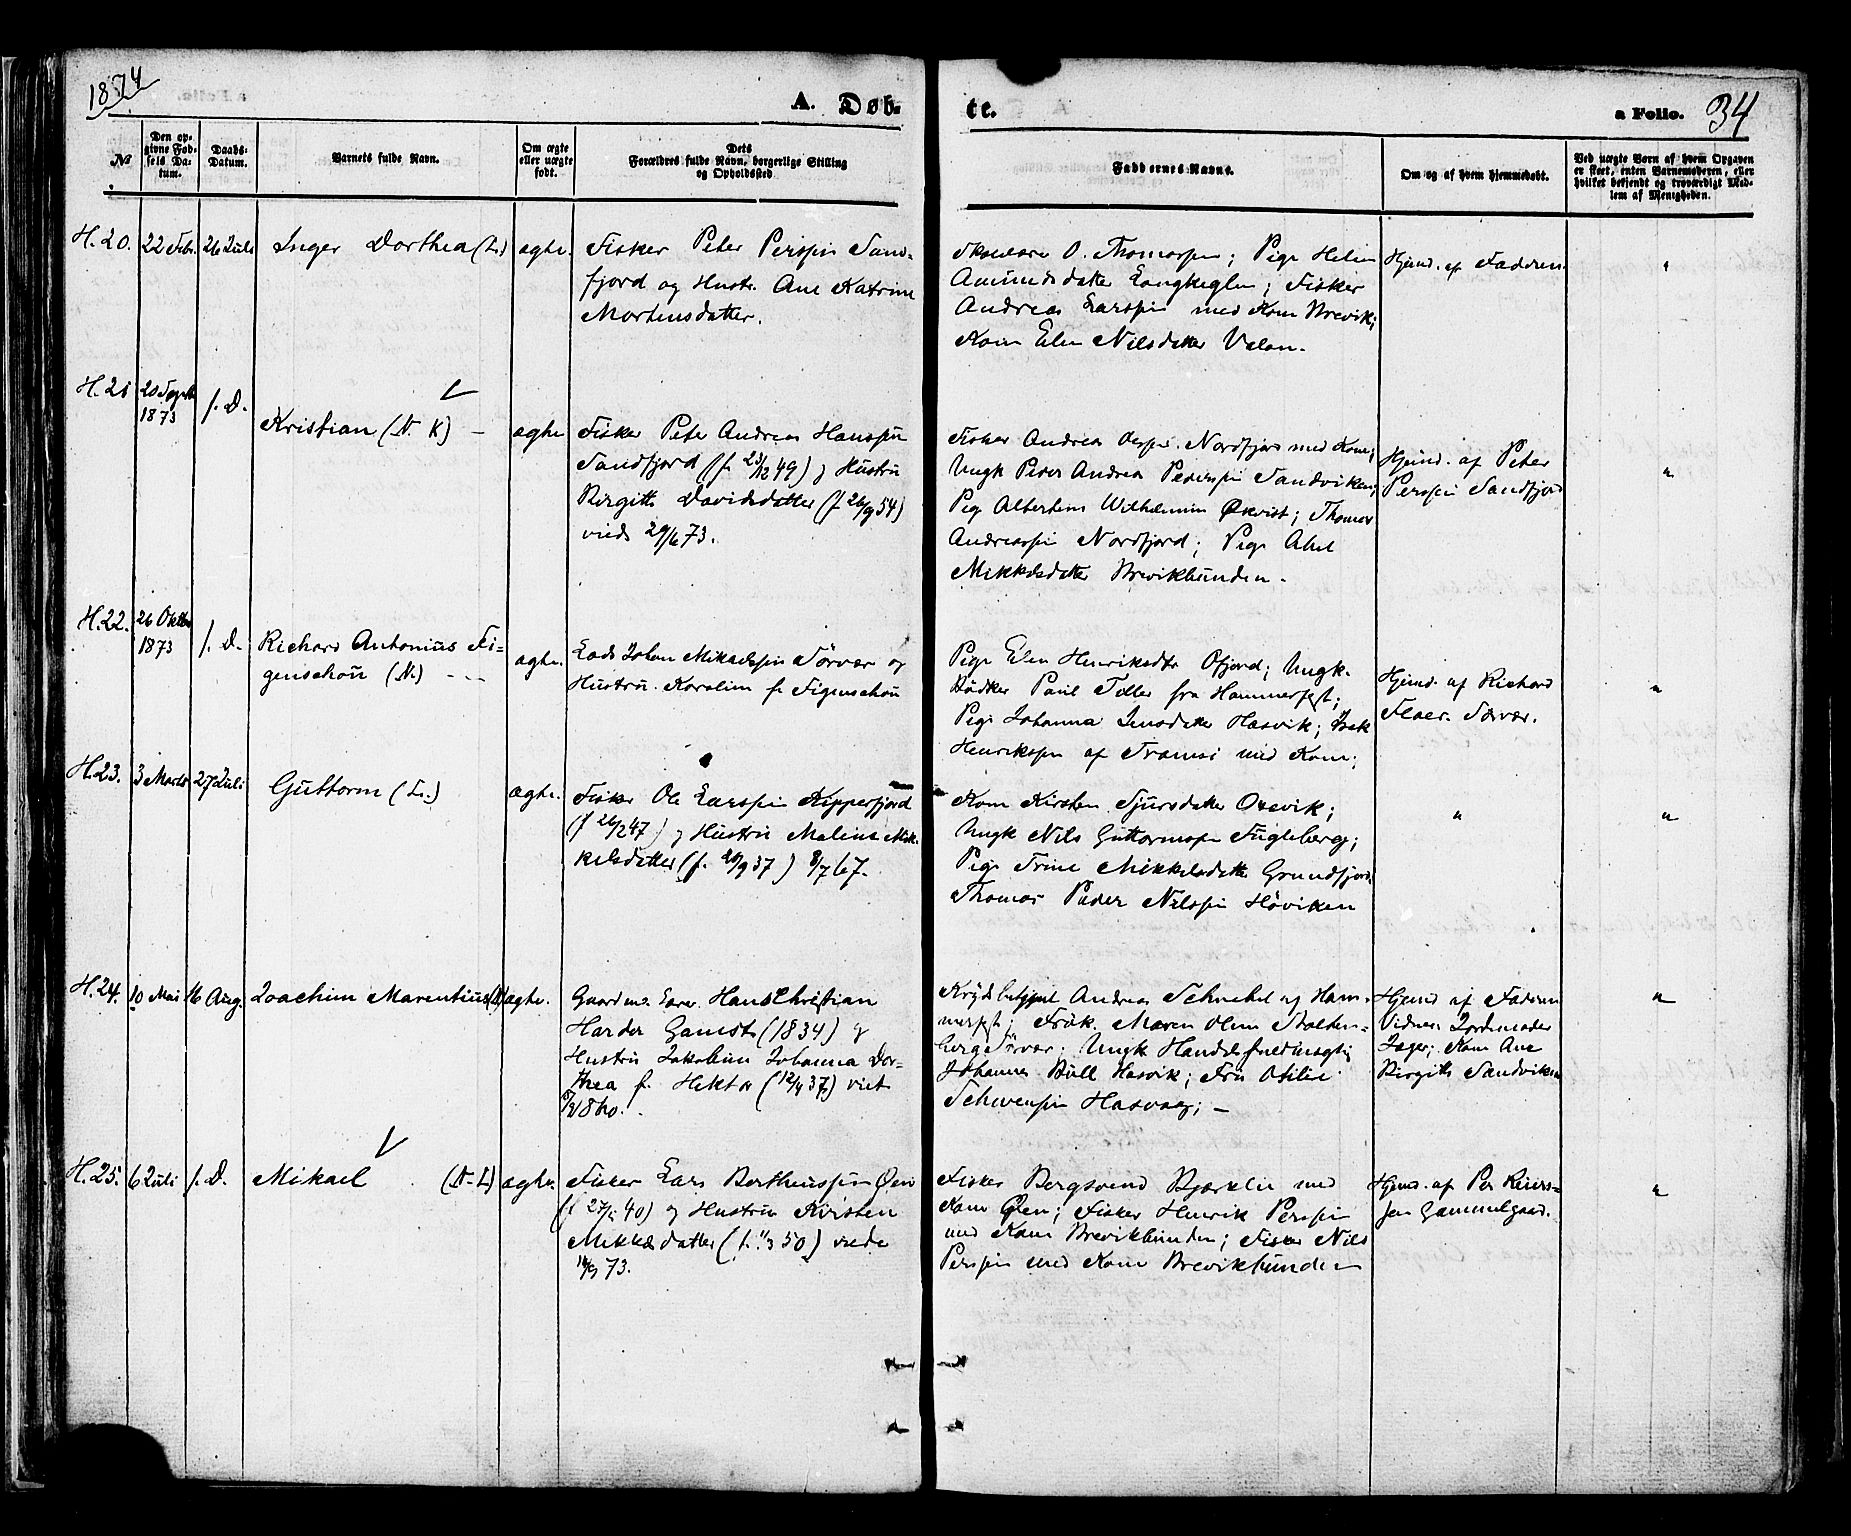 1874
A. Døb-
te.
a Folio. 34
№
Den op-
givne Fød-
sels Da-
tum.
Daabs-
Datum.
Barnets fulde Navn.
Om ægte
eller uægte
født.
Dets
Forældres fulde Navn, borgerlige Stilling
og Opholdssted
Faddernes Navne.
Om og af hvem hjemmedøbt.
Ved uægte Børn af hvem Opgaven
er skeet, enten Barnemoderen, eller
hvilket bekjendt og troværdigt Med-
lem af Menigheden.
H. 20. 22 Feb. 26 Juli Inger Dorthea (L.) ægte.
Fisker Peter Perssen Sand-
fjord og Hustr. Ane Katrine
Mortensdatter.
O. Thomassen; Pige Helene
Amundsdatter; Fisker
Andreas Larssen med Kone Brevik;
Kone Elen Nilsdatter
Hjemd. af Faderen.
"
H. 21 20 Septb. 1873 f. D. Kristian (N. K) - ægte
Fisker Peter Andreas Hanssen
Sandfjord (f. 23/12 49) og Hustru
Birgitte Davidsdatter (f 26/9 54)
viede 29/6 73.
Fisker Andreas Nordfjord med Kone;
Ungk Peder Andreas Pederssen Sandviken;
Pige Albertine Wilhelmine Økvist; Thomas
Andreassen Nordfjord; Pige Abel
Mikkelsdatter Brevikbunden.
Hjemd. af Peter
Perssen Sandfjord
"
H. 22. 26 Oktbr 1873 f. D. Richard Antonius Fi-
genschou (N.) - - - ægte.
Lods Johan Mikaelssen Sørvær og
Hustru Karoline f. Figenschou
Pige Elen Henriksdtr Ofjord; Ungk.
Bødker Paul Teller fra Hammerfest;
Pige Johanna Jensdatter Hasvik; Isak
Henrikssen af Tromsø med Kone;
Hjemd. af Richard
Floer. Sørvær.
"
H. 23. 3 Marts 27 Juli Guttorm (L.) ægte.
Fisker Ole Larssen Kipperfjord
(f 26/2 47) og Hustru Malene Mik-
kelsdatter (f. 29/9 37) 8/7 67.
Kone Kirsten Sjursdatter Oxevik;
Ungk Nils Guttormsen Fugleberg;
Pige Trine Mikkelsdatter Grundfjord;
Thomas Peder Nilssen Høviken
"
"
H. 24. 10 Mai 16 Aug. Joachim Marentius (N) ægte.
Hans Christian
Harder Gamst (1834) og
Hustru Jakobine Johanna Dor-
thea f. Hektor (12/4 37) viet
Andreas Schnebel og Ham-
merfest; Frøk. Maren Oline Stolten-
berg Sørvær; Ungk Handelsfuldmægtig
Johannes Büll Hasvik; Fru Otilie
Hasvaag; -
Hjemd af Faderen
Vidner Jordmoder
Jæger; Kone Ane
Birgitte Sandviken
"
H. 25. 6 Juli f. D. Mikael (N-L) ægte.
Fisker Lars Øen
(f 40) og Hustru Kirsten
Mikkelsdatter (f. 50) viede
73.
Fisker Bergsvend Bjørklie med
Kone Øen; Fisker Henrik Perssen
med Kone Brevikbunden; Fisker Nils
Perssen med Kone Brevikbunden
Hjemd. af Per
sen Gammelgaard.
"